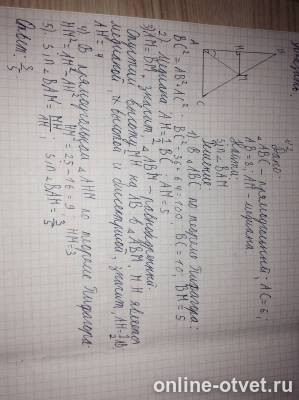 Дано:
△ABC - прямоугольный; AC=6;
AB=8; AM - медиана
Найти:
sin∠BAM
Решение:
1) В △ABC по теореме Пифагора:
BC²=AB²+AC²; BC²=36+64=100; BC=10; BM=5
2) Медиана AM=½BC; AM=5
3) AM=BM, значит, △ABM - равнобедренный.
Опустим высоту MH на AB в △ABM. MH является
медианой, и высотой и биссектрисой, значит, AH=½AB;
AH=4
4) В прямоугольном △AHM по теореме Пифагора:
HM²=AM²-AH²; HM²=25-16=9; HM=3
5) sin∠BAM=MH/AM; sin∠BAM=3/5
Ответ: 3/5
A
B
C
H
M
online-otvet.ru